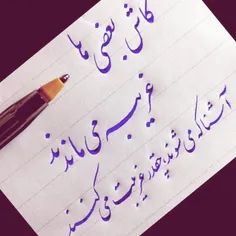 کاش بعضی ها
غریبه می ماندند
آشنا که می شوند، چقدر غریبت می کنند